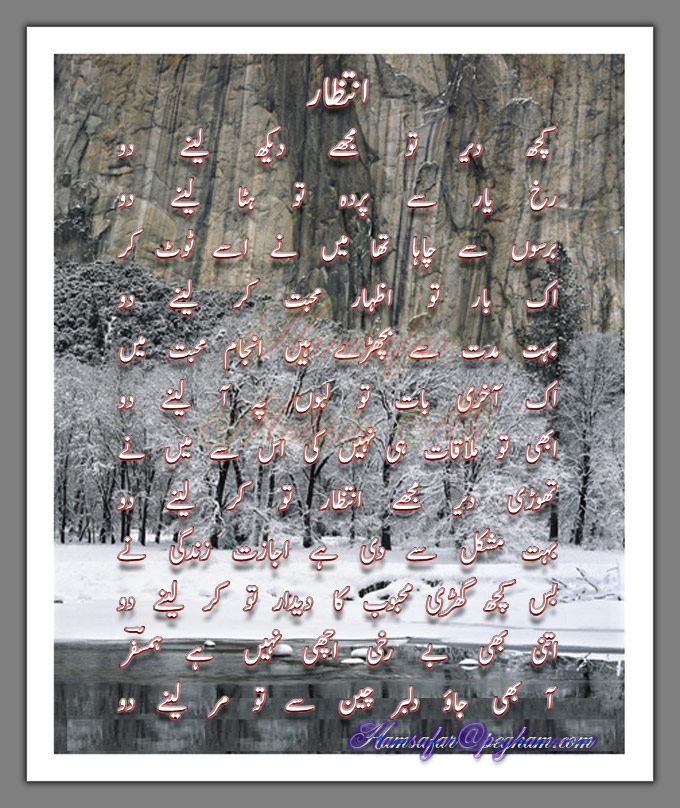 انتظار
کچھ دیر تو مجھے دیکھ لینے دو
رخ یار سے پردہ تو ہٹا لینے دو
برسوں سے چاہا تھا میں نے اسے ٹوٹ کر
اک بار تو اظہار محبت کر لینے دو
بہت مدت سے بچھڑے ہیں انجام محبت میں
اک آخری بات تو لبوں پہ آ لینے دو
ابھی تو ملاقات ہی نہیں کی اس سے میں نے
تھوڑی دیر مجھے انتظار تو کر لینے دو
بہت مشکل سے دی ہے اجازت زندگی نے
بس کچھ گھڑی محبوب کا دیدار تو کر لینے دو
اتنی بھی بے رخی اچھی نہیں ہے ہمسفر
آ بھی جاؤ دلبر چین سے تو مر لینے دو
Hamsafar@pegham.com